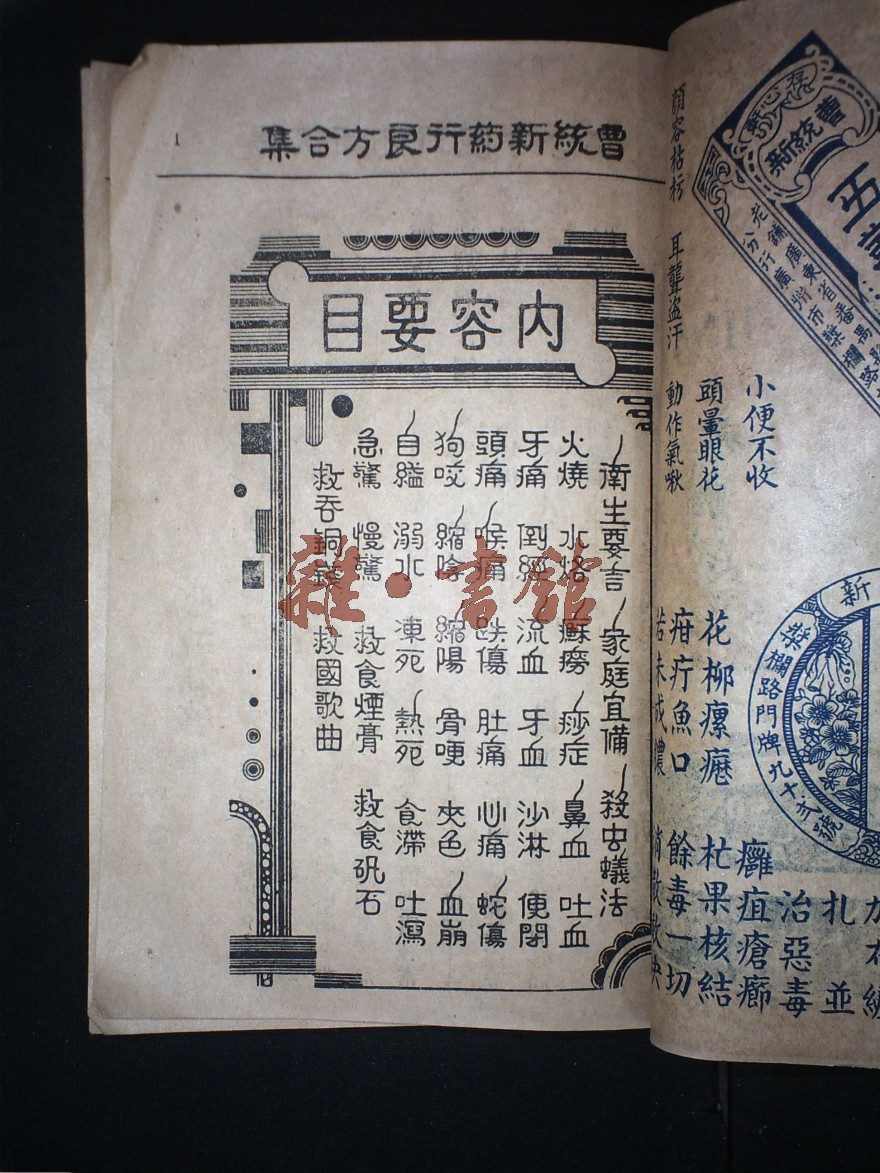 曹統新葯行良方合集
1
內容要目
衛生要言 家庭宜備 殺虫蟻法
火燒 水烙 癬癆 痧症 鼻血 吐血
牙痛 倒經 流血 牙血 沙淋 便閉
頭痛 喉痛 跌傷 肚痛 心痛 蛇傷
狗咬 縮陰 縮陽 骨哽 夾色 血崩
自縊 溺水 凍死 熱死 食滯 吐瀉
急驚 慢驚 救食煙膏 救食矾石
救吞銅鐵 救國歌曲
雜·書館
存心藥
曹統新
五
老舖廣東省番禺縣
分行廣州市槳欄路
小便不收
頭暈眼花
動作氣啾
顏容枯朽 耳聾盜汗
新
槳欄路門牌九十六號
扎 並
治惡毒
癰疽瘡癤
花柳瘰癧 杧果核結
疳疔魚口 餘毒一切
若未成膿